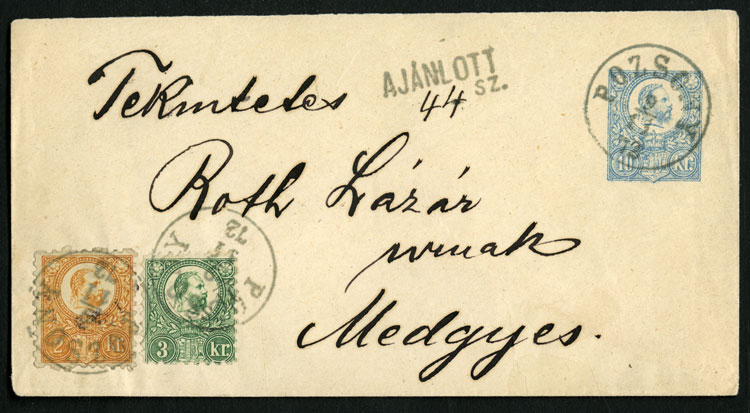 AJÁNLOTT
SZ.
Tekintetes 44
Roth Lázár
urnak
Medgyes.
POZSONY
72
10 Kr.
72
2 kr.
3 kr.